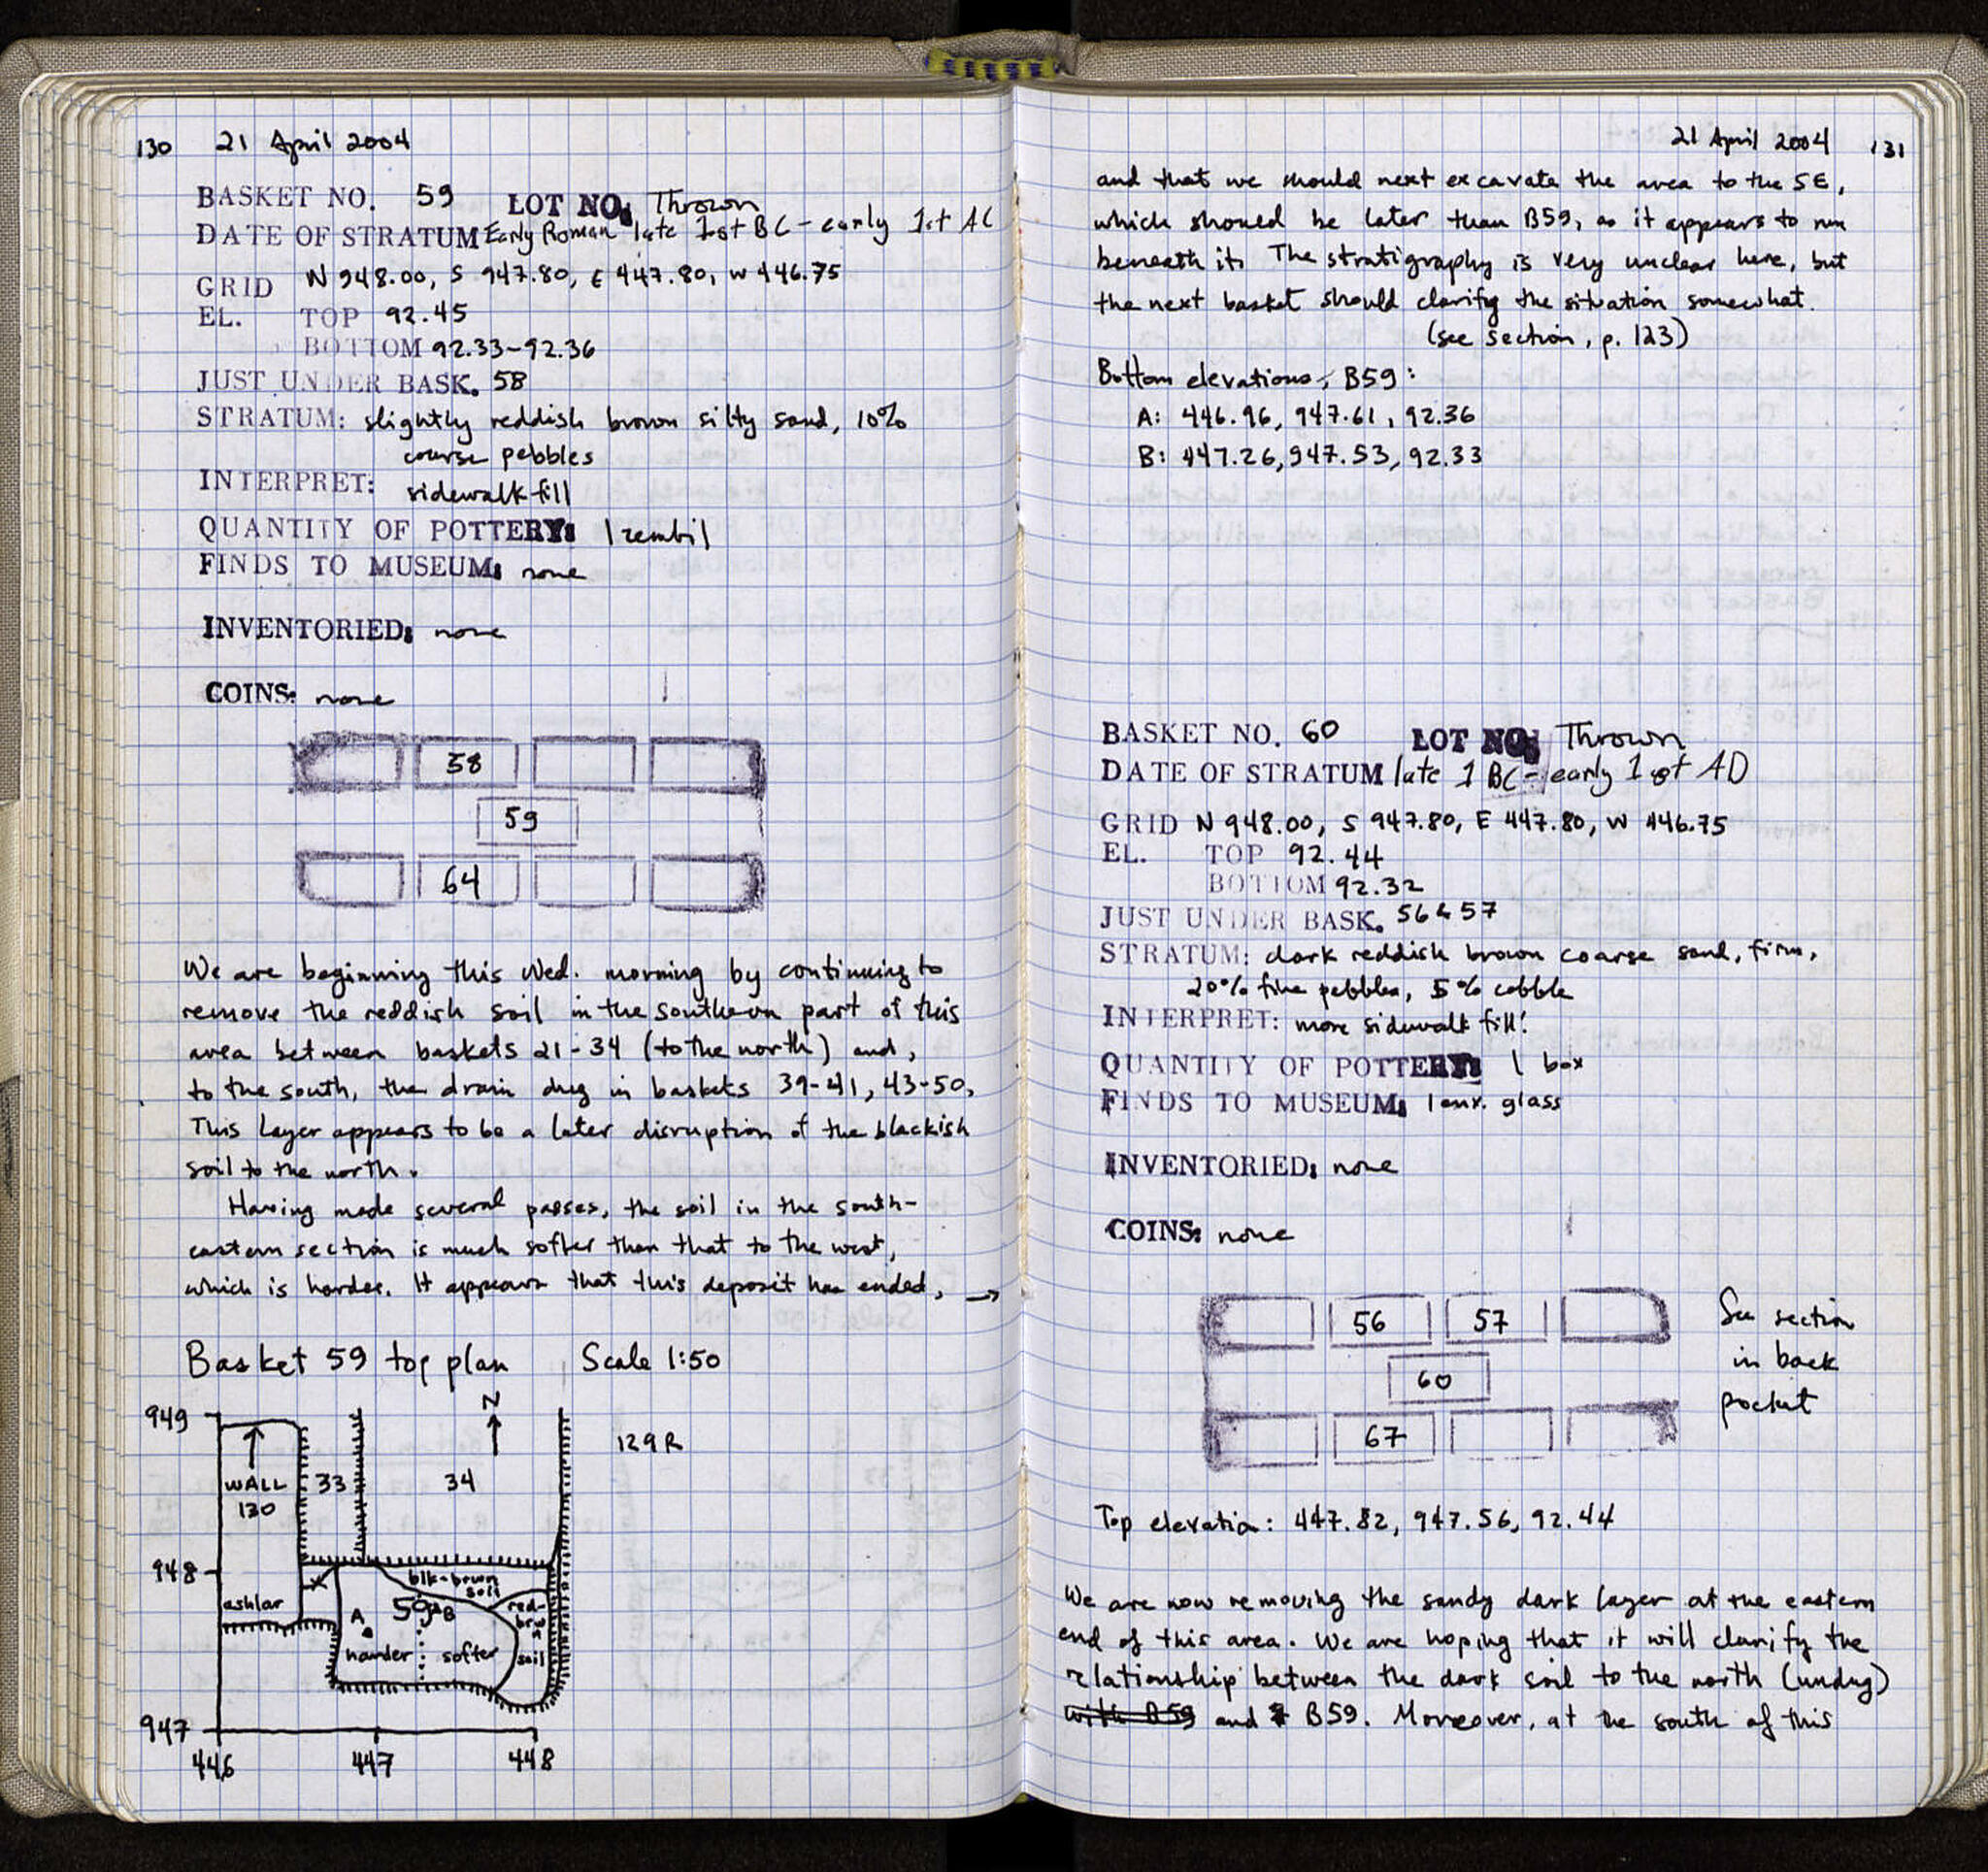 130 21 April 2004
BASKET NO. 59 LOT NO: Thrown
DATE OF STRATUM Early Roman late 1st BC - early 1st AC
GRID N 948.00, S 947.80, E 447.80, W 446.75
EL. TOP 92.45
BOTTOM 92.33-92.36
JUST UNDER BASK. 58
STRATUM: slightly reddish brown silty sand, 10%
course pebbles
INTERPRET: sidewalk fill
QUANTITY OF POTTERY: 1 zembil
FINDS TO MUSEUM: none
INVENTORIED: none
COINS: none
58
59
64
We are beginning this Wed. morning by continuing to
remove the reddish soil in the southern part of this
area between baskets 21-34 (to the north) and,
to the south, the drain dug in baskets 39-41, 43-50.
This layer appears to be a later disruption of the blackish
soil to the north.
Having made several passes, the soil in the south-
eastern section is much softer than that to the west,
which is harder. It appears that this deposit has ended, →
Basket 59 top plan Scale 1:50
949
N
129R
WALL
130
33
34
948
blk-brown
soil
ashlar
A
59
B
red-
brw
n
soil
harder
softer
947
446 447 448
21 April 2004 131
and that we should next excavate the area to the SE,
which should be later than B59, as it appears to run
beneath it. The stratigraphy is very unclear here, but
the next basket should clarify the situation somewhat.
(see section, p. 123)
Bottom elevations, B59:
A: 446.96, 947.61, 92.36
B: 447.26, 947.53, 92.33
BASKET NO. 60 LOT NO: Thrown
DATE OF STRATUM late 1 BC - early 1st AD
GRID N 948.00, S 947.80, E 447.80, W 446.75
EL. TOP 92.44
BOTTOM 92.32
JUST UNDER BASK. 56 & 57
STRATUM: dark reddish brown coarse sand, firm,
20% fine pebbles, 5% cobble
INTERPRET: more sidewalk fill!
QUANTITY OF POTTERY: 1 box
FINDS TO MUSEUM: 1 env. glass
INVENTORIED: none
COINS: none
56 57
60
67
See section
in back
pocket
Top elevation: 447.82, 947.56, 92.44
We are now removing the sandy dark layer at the eastern
end of this area. We are hoping that it will clarify the
relationship between the dark soil to the north (undug)
with B59 and B59. Moreover, at the south of this